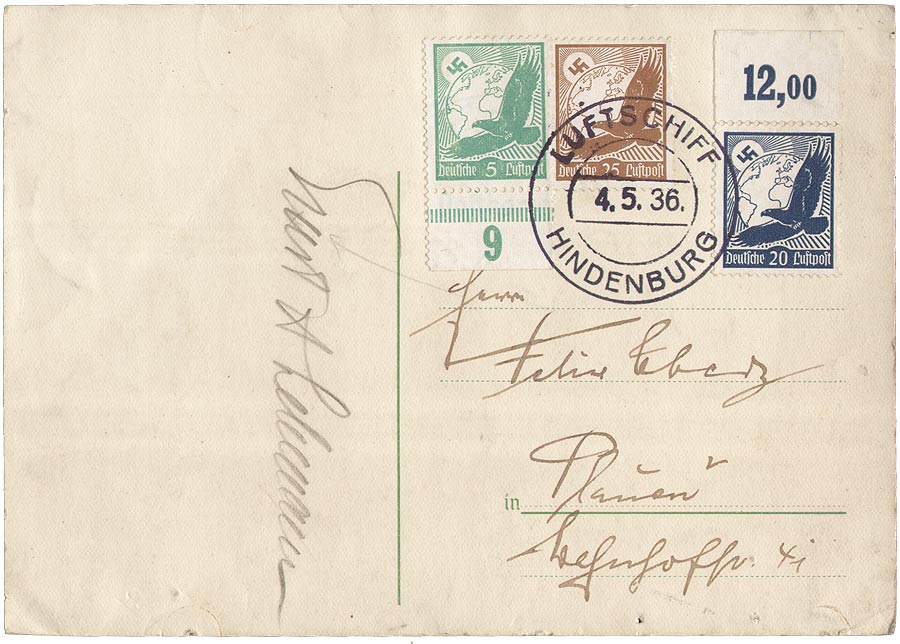 Deutsche 5 Luftpost
9
Deutsche 25 Luftpost
LUFTSCHIFF
4.5.36.
HINDENBURG
12,00
Deutsche 20 Luftpost
Herrn
Felix Eberz
in Plauen
Bahnhofstr. 41